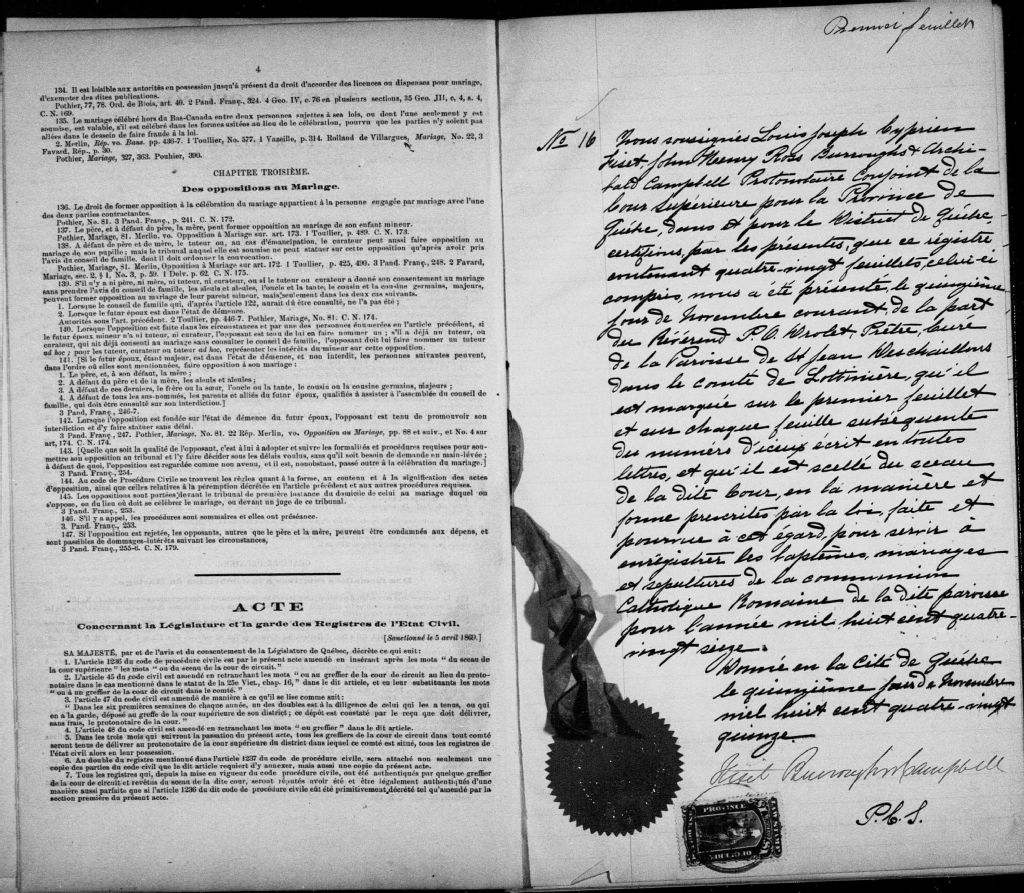 4
134. Il est loisible aux autorités en possession jusqu'à présent du droit d'accorder des licences ou dispenses pour mariage,
d'exempter des dites publications.
Pothier, 77, 78. Ord. de Blois, art. 40. 2 Pand. Franç., 324. 4 Geo. IV, c. 76 en plusieurs sections, 35 Geo. III, c. 4, s. 4,
C. N. 169.
135. Le mariage célébré hors du Bas-Canada entre deux personnes sujettes à ses lois, ou dont l'une seulement y est
soumise, est valable, s'il est célébré dans les formes usitées au lieu de la célébration, pourvu que les parties n'y soient pas
allées dans le dessein de faire fraude à la loi.
2. Merlin, Rép. vo. Bans. pp. 436-7. 1 Toullier, No. 577. 1 Vazeille, p. 314. Rolland de Villargues, Mariage, No. 22, 3
Favard, Rép., p. 30.
Pothier, Mariage, 327, 363. Pouhier, 390.
CHAPITRE TROISIÈME.
Des oppositions au Mariage.
136. Le droit de former opposition à la célébration du mariage appartient à la personne engagée par mariage avec l'une
des deux parties contractantes.
Pothier, No. 81. 3 Pand. Franç., p. 241. C. N. 172.
137. Le père, et à défaut du père, la mère, peut former opposition au mariage de son enfant mineur.
Pothier, Mariage, 81. Merlin. vo. Opposition à Mariage sur. art. 173. 1 Toullier, p. 489. C. N. 173.
138. A défaut de père et de mère, le tuteur ou, au cas d'émancipation, le curateur peut aussi faire opposition au
mariage de son pupille; mais le tribunal auquel elle est soumise ne peut statuer sur cette opposition qu'après avoir pris
l'avis du conseil de famille. dont il doit ordonner la convocation.
Pothier, Mariage, 81. Merlin, Opposition à Mariage sur art. 172. 1 Toullier, p. 425, 490. 3 Pand. Franç., 248. 2 Favard,
Mariage, sec. 2, § 1, No. 3, p. 59. 1 Delv. p. 62. C. N. 175.
139. S'il n'y a ni père, ni mère, ni tuteur, ni curateur, ou si le tuteur ou curateur a donné son consentement au mariage
sans prendre l'avis du conseil de famille, les aïeuls et aïeules, l'oncle et la tante, le cousin et la cousine germains, majeurs,
peuvent former opposition au mariage de leur parent mineur, mais seulement dans les deux cas suivants.
1. Lorsque le conseil de famille qui, d'après l'article 122, aurait dû être consulté, ne l'a pas été;
2. Lorsque le futur époux est dans l'état de démence.
Autorités sous l'art. précédent. 2 Toullier, pp. 446-7. Pothier, Mariage, No. 81. C. N. 174.
140. Lorsque l'opposition est faite dans les circonstances et par une des personnes énumérées en l'article précédent, si
le futur époux mineur n'a ni tuteur, ni curateur, l'opposant est tenu de lui en faire nommer un; s'il a déjà un tuteur, ou
curateur, qui ait déjà consenti au mariage sans consulter le conseil de famille, l'opposant doit lui faire nommer un tuteur
ad hoc; pour les tuteur, curateur ou tuteur ad hoc, représenter les intérêts du mineur sur cette opposition.
141. [Si le futur époux, étant majeur, est dans l'état de démence, et non interdit, les personnes suivantes peuvent,
dans l'ordre où elles sont mentionnées, faire opposition à son mariage:
1. Le père, et, à son défaut, la mère;
2. A défaut du père et de la mère, les aïeuls et aïeules;
3. A défaut de ces derniers, le frère ou la sœur, l'oncle ou la tante, le cousin ou la cousine germains, majeurs;
4. A défaut de tous les sus-nommés, les parents et alliés du futur époux, qualifiés à assister à l'assemblée du conseil de
famille, qui doit être consulté sur son interdiction.]
3 Pand. Franç., 246-7.
142. Lorsque l'opposition est fondée sur l'état de démence du futur époux, l'opposant est tenu de promouvoir son
interdiction et d'y faire statuer sans délai.
3 Pand. Franç., 247. Pothier, Mariage, No. 81. 22 Rép. Merlin, vo. Opposition au Mariage, pp. 88 et suiv., et No. 4 sur
art. 174. C. N. 174.
143. [Quelle que soit la qualité de l'opposant, c'est à lui à adopter et suivre les formalités et procédures requises pour sou-
mettre son opposition au tribunal et l'y faire décider sous les délais voulus, sans qu'il soit besoin de demande en main-levée;
à défaut de quoi, l'opposition est regardée comme non avenu, et il est, nonobstant, passé outre à la célébration du mariage.]
3 Pand. Franç., 254.
144. Au code de Procédure Civile se trouvent les règles quant à la forme, au contenu et à la signification des actes
d'opposition, ainsi que celles relatives à la péremption décrétée en l'article précédent et aux autres procédures requises.
145. Les oppositions sont portées devant le tribunal de première instance du domicile de celui au mariage duquel on
s'oppose, ou du lieu où doit se célébrer le mariage, ou devant un juge de ce tribunal.
3 Pand. Franç., 253.
146. S'il y a appel, les procédures sont sommaires et elles ont préséance.
3. Pand. Franç., 253.
147. Si l'opposition est rejetée, les opposants, autres que le père et la mère, peuvent être condamnés aux dépens, et
sont passibles de dommages-intérêts suivant les circonstances,
3 Pand. Franç., 255-6. C. N. 179.
ACTE
Concernant la Législature et la garde des Registres de l'Etat Civil.
[Sanctionné le 5 avril 1869.]
SA MAJESTÉ, par et de l'avis et du consentement de la Législature de Québec, décrète ce qui suit:
1. L'article 1236 du code de procédure civile est par le présent acte amendé en insérant après les mots "du sceau de
la cour supérieure" les mots "ou du sceau de la cour de circuit."
2. L'article 45 du code civil est amendé en retranchant les mots "ou au greffier de la cour de circuit au lieu du proto-
notaire dans le cas mentionné dans le statut de la 25e Vict., chap. 16," dans le dit article, et en leur substituants les mots
"ou à un greffier de la cour de circuit dans le comté."
3. l'article 47 du code civil est amendé de manière à ce qu'il se lise comme suit:
"Dans les six premières semaines de chaque année, un des doubles est à la diligence de celui qui les a tenus, ou qui
en a la garde, déposé au greffe de la cour supérieure de son district; ce dépôt est constaté par le reçu que doit délivrer,
sans frais, le protonotaire de la cour."
4. L'article 48 du code civil est amendé en retranchant les mots "ou greffier" dans le dit article.
5. Dans les trois mois qui suivront la passation du présent acte, tous les greffiers de la cour de circuit dans tout comté
seront tenus de délivrer au protonotaire de la cour supérieure du district dans lequel ce comté est situé, tous les registres de
l'état civil alors en leur possession.
6. Au double du registre mentionné dans l'article 1237 du code de procédure civile, sera attaché non seulement une
copie des parties du code civil que le dit article requiert d'y annexer, mais aussi une copie du présent acte.
7. Tous les registres qui, depuis la mise en vigueur du code procédure civile, ont été authentiqués par quelque greffier
de la cour de circuit et revêtus du sceau de la dite cour, seront réputés avoir été, et être légalement authentiqués d'une
manière aussi parfaite que si l'article 1236 du dit code de procédure civile eût été primitivement décrété tel qu'amendé par la
section première du présent acte.
Premier feuillet
No 16
Nous soussignés Louis Joseph Cyprien
Fiset, John Henry Ross Burroughs & Archi-
bald Campbell Protonotaire Conjoint de la
Cour Supérieure pour la Province de
Québec, dans et pour le District de Québec,
certifions, par les présentes, que ce régistre
contenant quatre-vingt feuillets, celui-ci
compris, nous a été présenté, le quinzième
jour de Novembre courant, de la part
du Révérend P. O. Drolet, Prêtre, Curé
de la Paroisse de St Jean Deschaillons
dans le comté de Lotbinière, qu'il
est marqué sur le premier feuillet
et sur chaque feuille subséquente
du numéro d'iceux écrit en toutes
lettres, et qu'il est scellé du sceau
de la dite Cour, en la manière et
forme prescrites par la loi, faite et
pourvue à cet égard, pour servir à
enrégistrer les baptêmes, mariages
et sépultures de la communion
Catholique Romaine de la dite paroisse
pour l'année mil huit cent quatre-
vingt seize.
Donné en la Cité de Québec
le quinzième jour de Novembre
mil huit cent quatre-vingt
quinze
Fiset Burroughs & Campbell
P.C.S.
PROVINCE